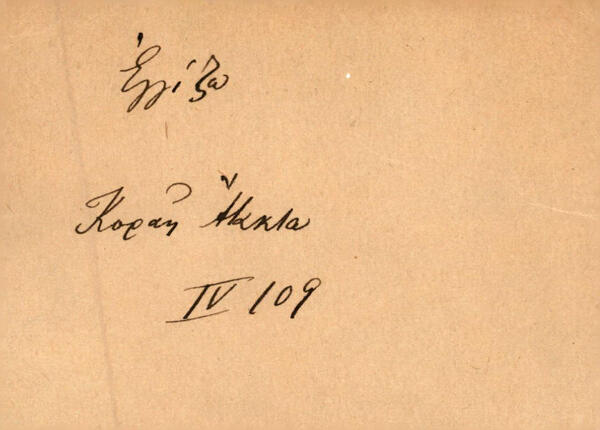 ἐγγίζω
Κοραῆ Ἄτακτα
IV 109